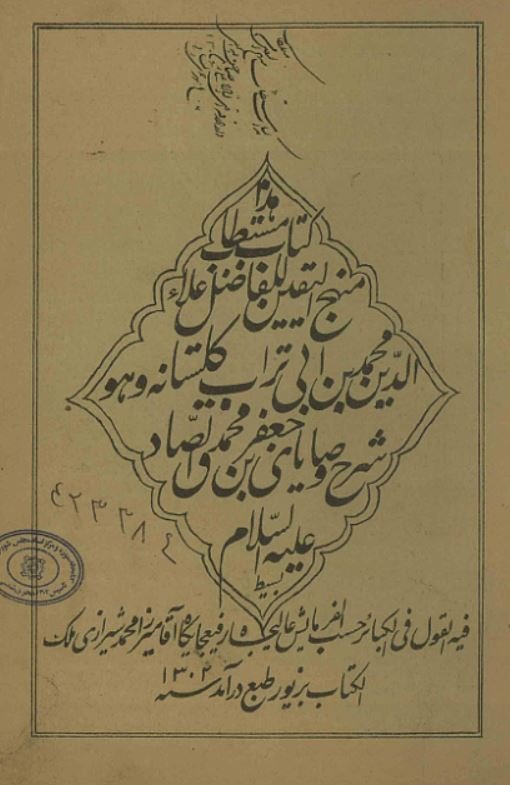 هذا
كتاب مستطاب
منهج اليقين للفاضل علاء
الدين محمد بن ابی تراب كلستانه وهو
شرح وصایای جعفر بن محمد الصادق
عليه السلام
بسيط
فيه القول فى الكبائر حسب الفرمايش عاليجاه رفيعجايگاه آقا ميرزا محمد شيرازى ملك
الكتاب بزيور طبع درآمد سنه ١٣٠٢